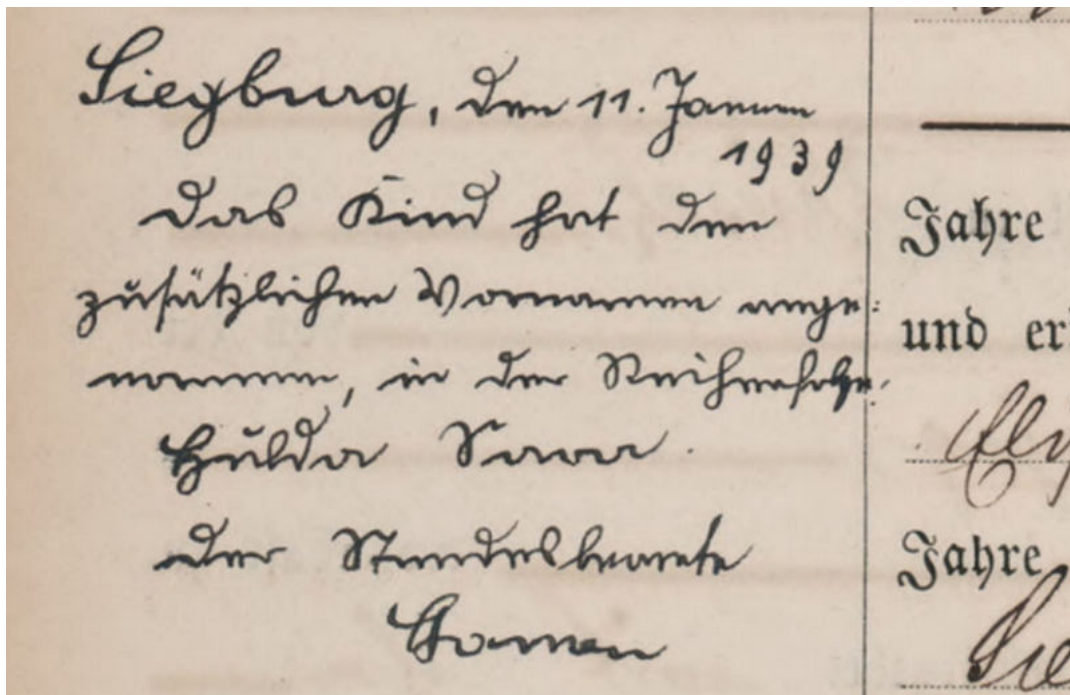 Siegburg, den 11. Januar
1939
Das Kind hat den
zusätzlichen Vornamen ange-
nommen, in der Reihenfolge:
Hulda Sara.
Der Standesbeamte
Jahre
und er
Jahre